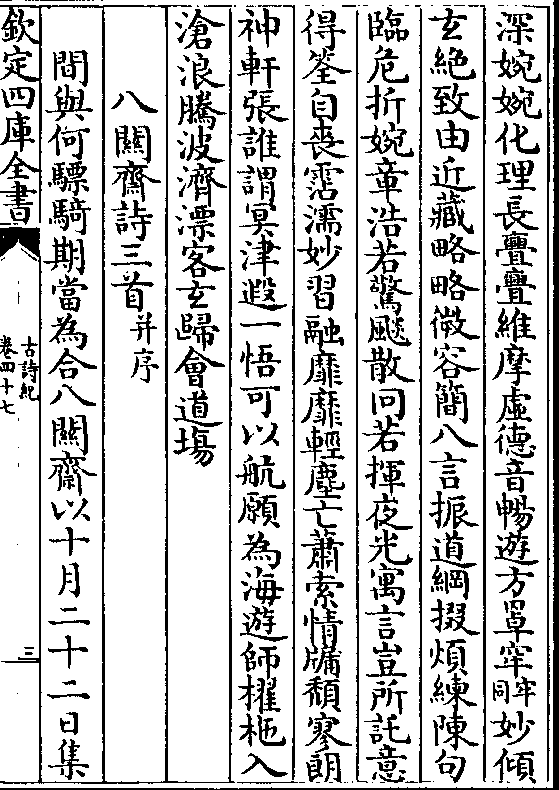 深婉婉化理長亹亹維摩虛德音暢遊方罩牢同牢妙傾
玄絶致由近藏略略微容簡八言振道綱掇煩練陳句
臨危折婉章浩若驚飈散冏若揮夜光寓言豈所託意
得筌自喪霑濡妙習融靡靡輕塵亡蕭索情牖頽寥朗
神軒張誰謂冥津遐一悟可以航願為海遊師櫂柂入
滄浪騰波濟漂客玄歸會道場
八關齋詩三首并序
間與何驃騎期當為合八關齋以十月二十二日集
欽定四庫全書
古詩紀
卷四十七
三